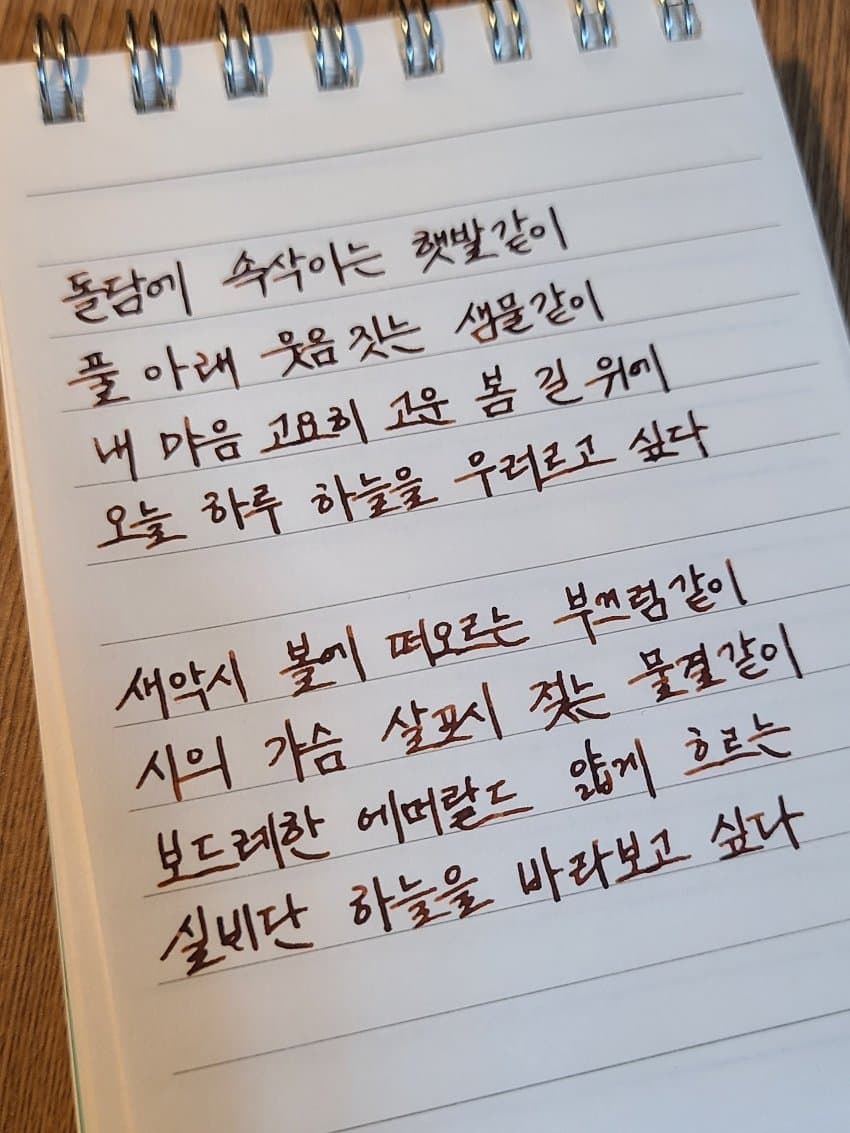 돌담에 속삭이는 햇발같이
풀 아래 웃음 짓는 샘물같이
내 마음 고요히 고운 봄 길 위에
오늘 하루 하늘을 우러르고 싶다
새악시 볼에 떠오르는 부끄럼같이
시의 가슴 살포시 젖는 물결같이
보드레한 에머랄드 얇게 흐르는
실비단 하늘을 바라보고 싶다